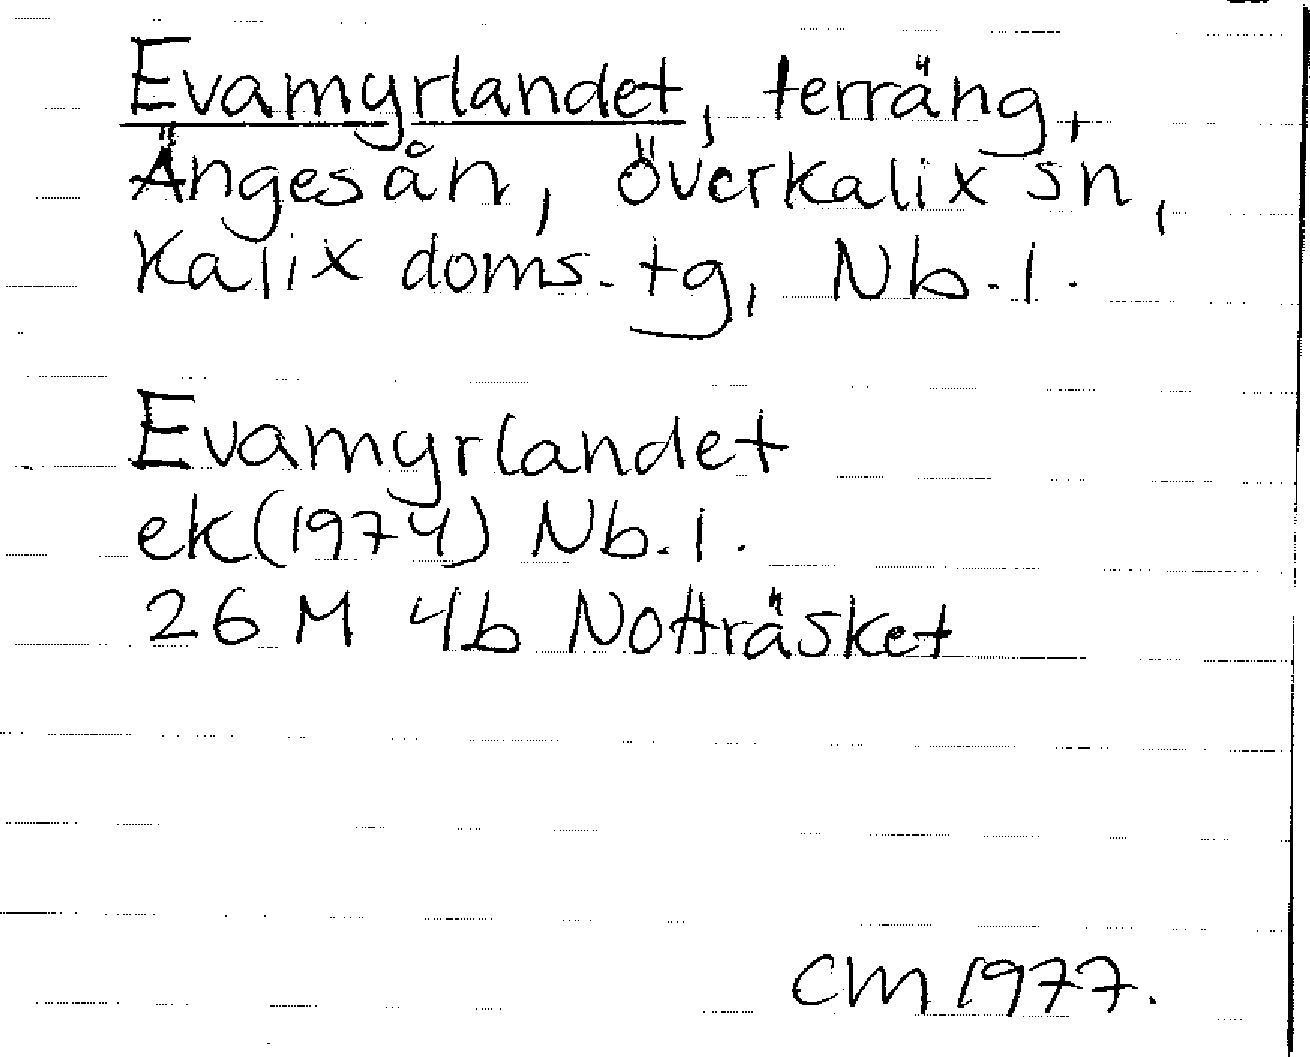 Evamyrlandet, terräng,
Ängesån, Överkalix sn,
Kalix doms. tg, Nb. l.
Evamyrlandet
ek (1974) Nb. l.
26 M 4b Notträsket
CM 1977.